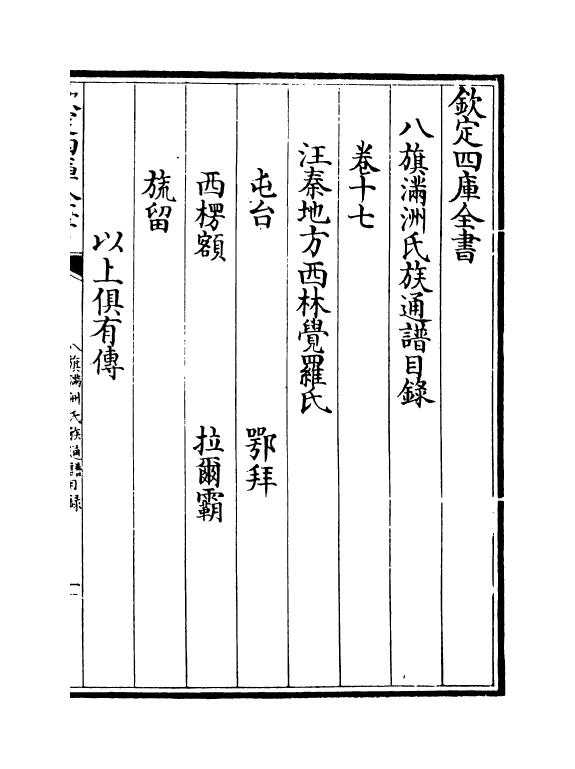 欽定四庫全書
八旗滿洲氏族通譜目錄
卷十七
汪秦地方西林覺羅氏
屯台　鄂拜
西楞額　拉爾霸
旒留
以上俱有傳
八旗滿洲氏族通譜目錄
一